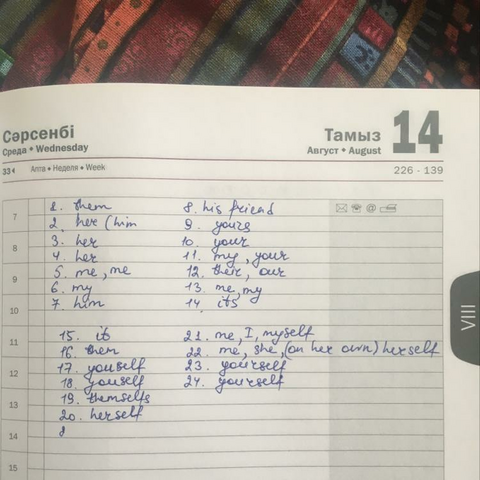 Сәрсенбі
Среда • Wednesday
Тамыз 14
Август • August
33 Апта • Неделя • Week
226 - 139
7
8
9
10
11
12
13
14
15
VIII
1. them
2. her (him
3. her
4. her
5. me, me
6. my
7. him
8. his friend
9. yours
10. your
11. my, your
12. their, our
13. me, my
14. its
15. it
16. them
17. youself
18. youself
19. themselfs
20. herself
21. me, I, myself
22. me, she, (on her own) herself
23. yourself
24. yourself